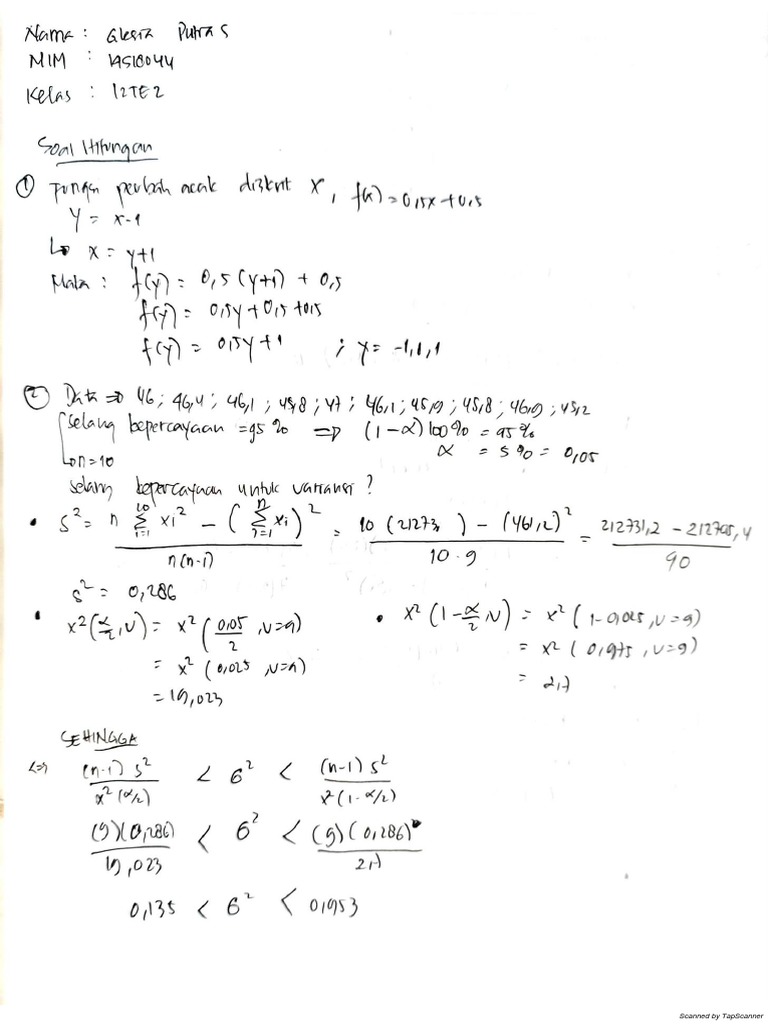 Nama : Glesia Putra S
NIM : 14518044
Kelas : 12TE2
Soal Hitungan
① Fungsi peubah acak diskrit X, f(x) = 0,5x + 0,5
Y = x-1
↳ x = y+1
Maka : f(y) = 0,5 (y+1) + 0,5
f(y) = 0,5y + 0,5 + 0,5
f(y) = 0,5y + 1 ; y = -1,1,1
② Data ⇒ 46 ; 46,4 ; 46,1 ; 45,8 ; 47 ; 46,1 ; 45,9 ; 45,8 ; 46,9 ; 45,2
selang kepercayaan = 95 % ⇒ (1-α) 100% = 95%
↳ n = 10 α = 5 % = 0,05
selang kepercayaan untuk variansi ?
• S² = \frac{n \sum_{i=1}^{10} xi² - (\sum_{i=1}^{n} xi)²}{n(n-1)} = \frac{10 (21273 ) - (461,2)²}{10 . 9} = \frac{212731,2 - 212705,4}{90}
S² = 0,286
• x² (α/2, υ) = x² (0,05/2 , υ=9) • x² (1-α/2, υ) = x² (1-0,025, υ=9)
= x² (0,025 , υ=9) = x² (0,975 , υ=9)
= 19,023 = 2,7
SEHINGGA
<=> \frac{(n-1) S²}{x² (α/2)} < σ² < \frac{(n-1) S²}{x² (1-α/2)}
\frac{(9)(0,286)}{19,023} < σ² < \frac{(9)(0,286)}{2,7}
0,135 < σ² < 0,953
Scanned by TapScanner